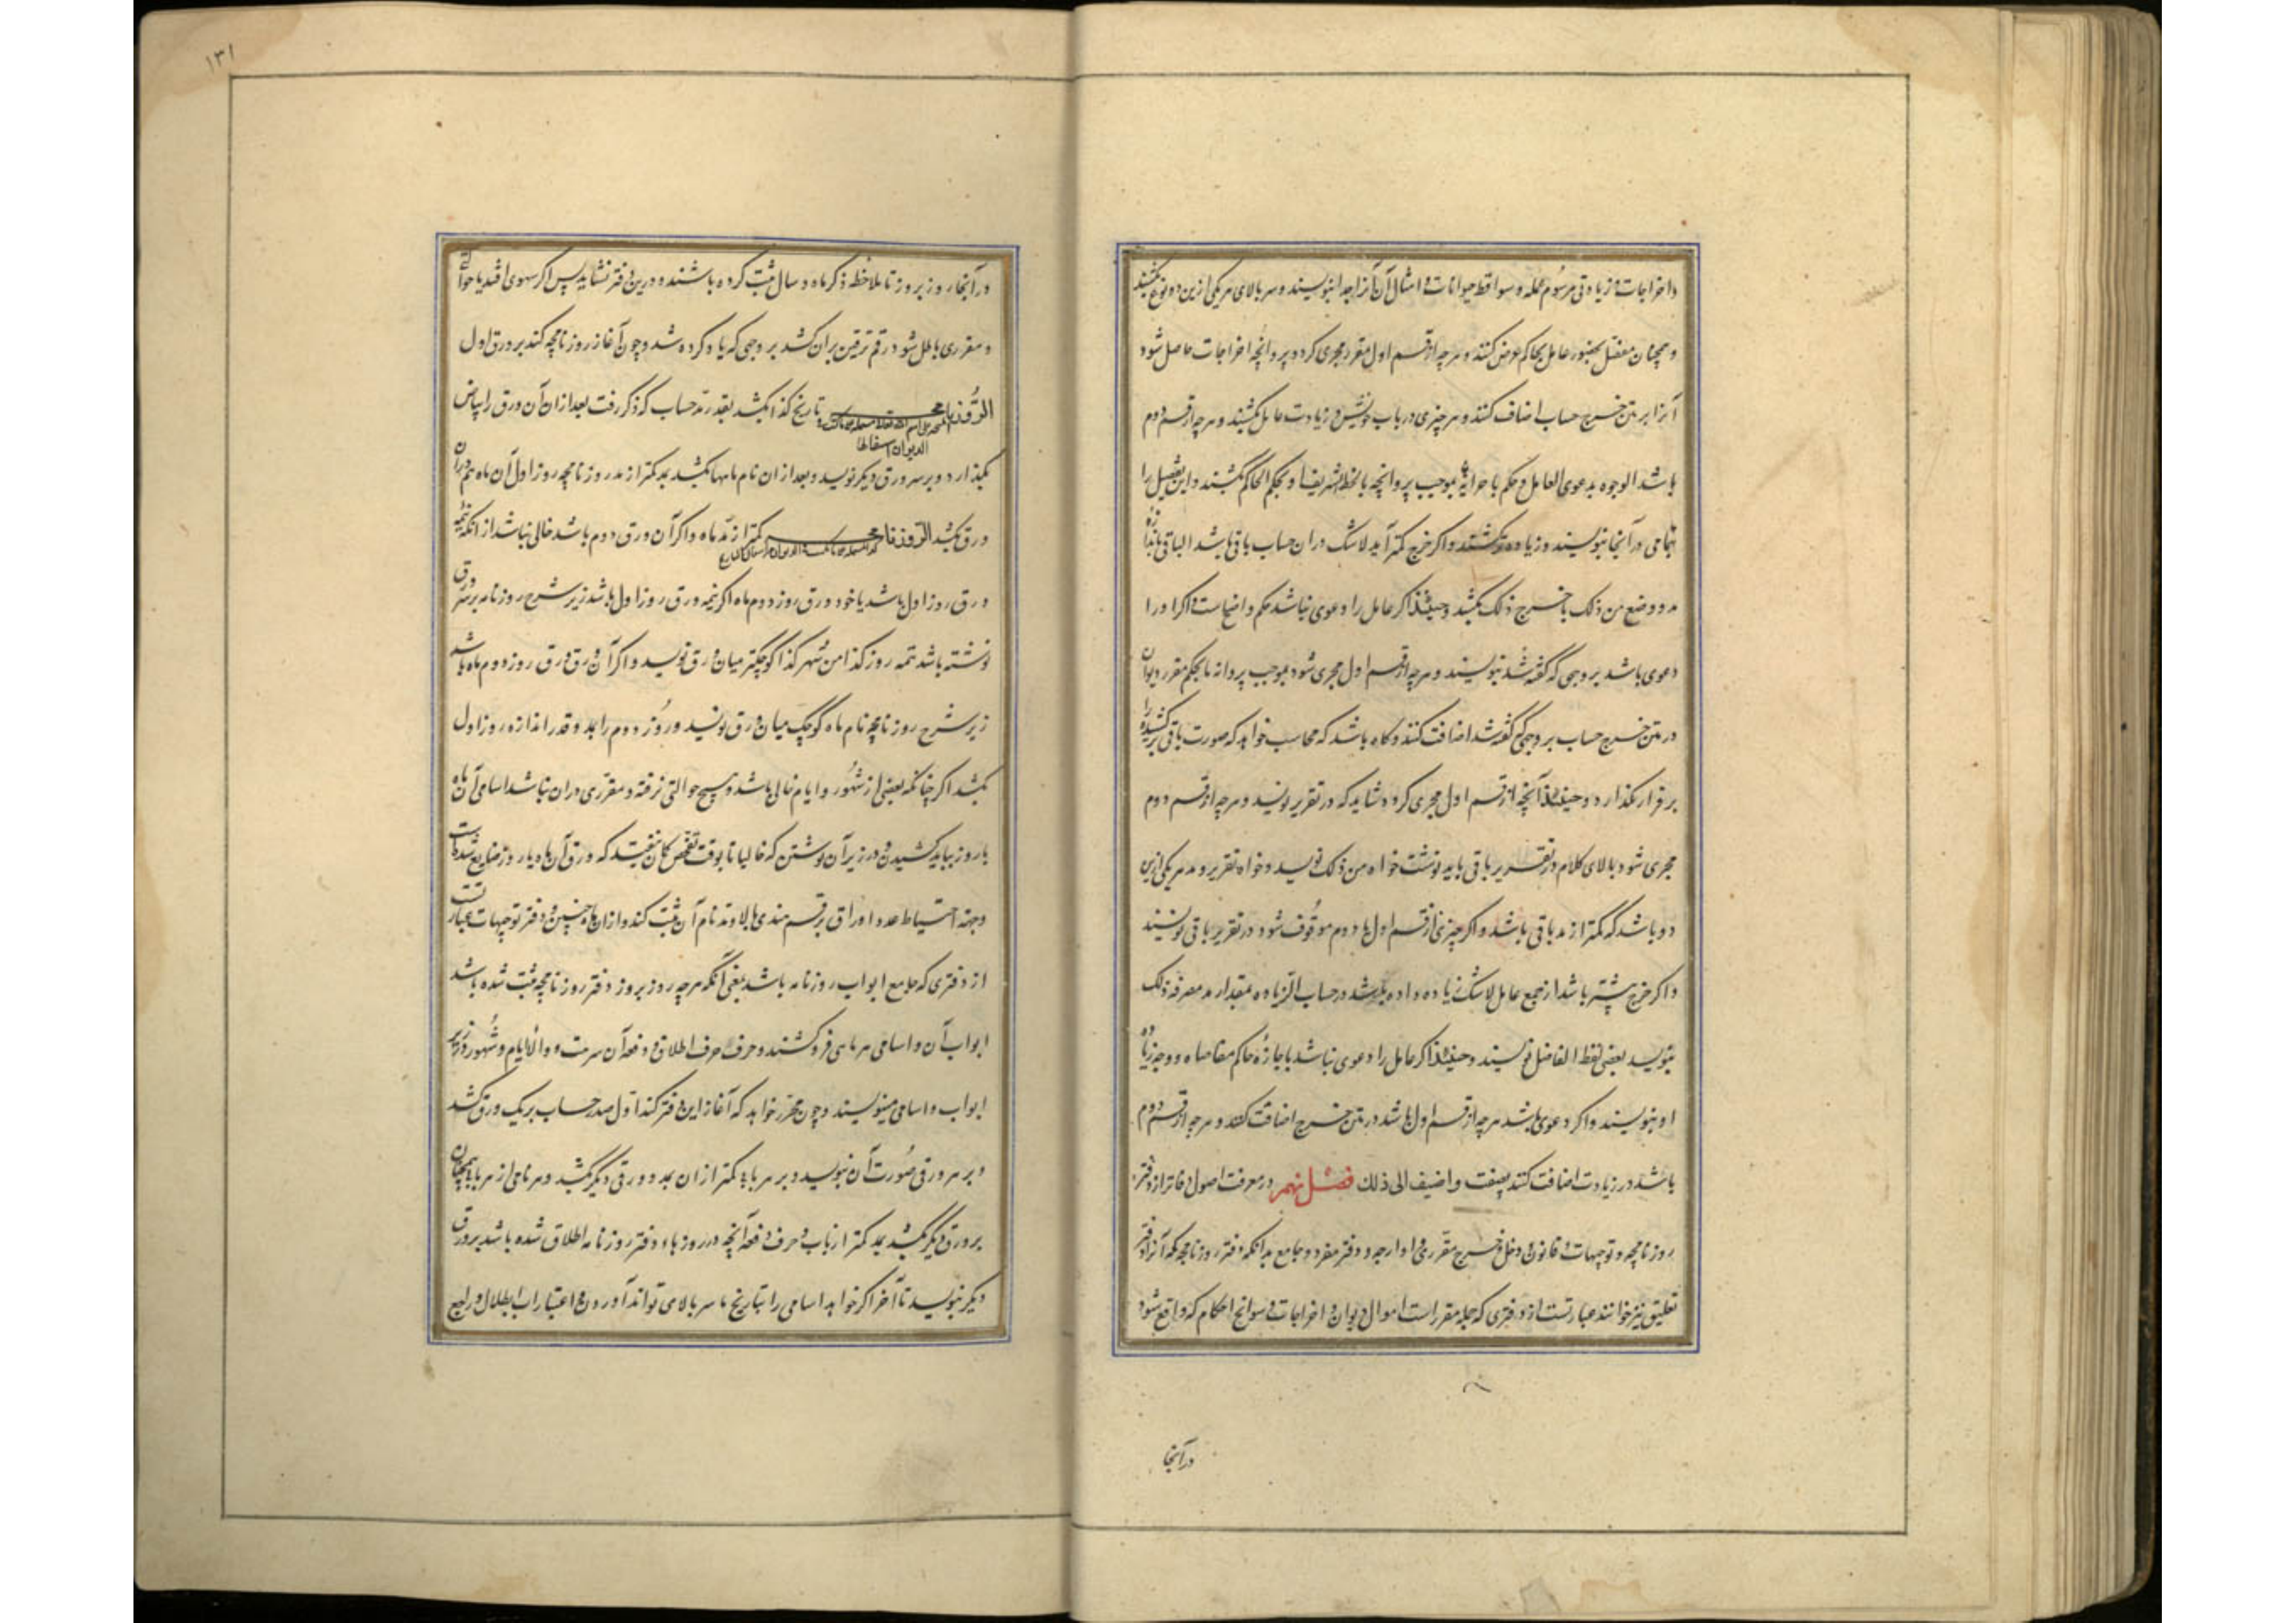 و اخراجات و زیادتی مرسوم عمله و سواقط حیوانات و امثال آن آنرا جدا بنویسند و سر بالای هر یکی ازین دو نوع بکشند
و همچنان مفصل بحضور عامل بحاکم عرض کنند و هر چه از قسم اول مقرر و مجری گردد و پروانچه اخراجات حاصل شود
آنرا بر متن خرج حساب اضافت کنند و هر چیزی در باب خویش و زیادت عامل بکشند و هر چه از قسم دوم
باشد الوجوه بدعوی العامل و حکم باجرائه بموجب پروانچه بالخط الشریف او بحکم الحاکم بکشند و این تفصیل را
بتمامی در آنجا بنویسند و زیاده نکشند و اگر خرج کمتر آید لاشک در آن حساب باقی باشد الباقی باندازه
مد و وضع من ذلک یا خرج ذلک بکشد و حینئذ اگر عامل را دعوی نباشد حکم واضحست و اگر او را
دعوی باشد بر وجهی که گفته شد بنویسند و هر چه از قسم اول مجری شود بموجب پروانه یا بحکم مقرر دیوان
در متن خرج حساب بر وجهی که گفته شد اضافت کنند و گاه باشد که محاسب خواهد که صورت باقی بر کشیده را
برقرار بگذارد و حینئذ آنچه از قسم اول مجری گردد شاید که در تقریر نویسد و هر چه از قسم دوم
مجری شود بالای کلام در تقریر باقی باید نوشت خواه من ذلک نویسد و خواه تقریر و مد هر یکی ازین
دو باشد که کمتر از مد باقی باشد و اگر چیزی از قسم اول یا دوم موقوف شود در تقریر باقی نویسند
و اگر خرج بیشتر باشد از جمع عامل لاشک زیاده داده باشد در حساب الزیاده بمقدار مد مصرفه ذلک
بنویسد بعضی لفظ الفاضل نویسند و حینئذ اگر عامل را دعوی نباشد باجازه حاکم مفاصاه و وجه زیاده
او بنویسند و اگر دعوی باشد هر چه از قسم اول باشد در متن خرج اضافت کنند و هر چه از قسم دوم
باشد در زیادت اضافت کنند بصیغت و اضیف الی ذلک فصل نهم در معرفت اصول دفاتر از دفتر
روزنامچه و توجیهات و قانون و دخل و خرج مقرری و اوارجه و دفتر مفرد و جامع بدانکه دفتر روزنامچه که آنرا دفتر
تعلیق نیز خوانند عبارتست از دفتری که جمله مقررات اموال دیوان و اخراجات و سوانح احکام که واقع شود
در آنجا
۱۳۱
در آنجا روز بروز تا بلاحظه ذکر ماه و سال ثبت کرده باشند و درین دفتر نشاید پس اگر سهوی افتد یا حوالتی
و مقرری باطل شود رقم ترقین بر آن کشد بر وجهی که یاد کرده شد و چون آغاز روزنامچه کند بر ورق اول
الروزنامجه بتاریخ کذا بکشد بقدر مد حساب که ذکر رفت بعد از آن آن ورق را بیاض
بگذارد و بر سر ورق دیگر نویسد و بعد از آن نام ماهها بکشد بمد کمتر از مد روزنامچه روز اول آن ماه هم در آن
ورق بکشد الروزنامجه کمتر از مد ماه و اگر آن ورق دوم باشد خالی نباشد از آنکه تتمه
ورق روز اول باشد یا خود ورق روز دوم ماه اگر تتمه ورق روز اول باشد زیر شرح روزنامه بر سر ورق
نوشته باشد تتمه روز کذا من شهر کذا کوچکتر میان ورق نویسد و اگر آن ورق ورق روز دوم ماه باشد
زیر شرح روزنامچه نام ماه کوچک میان ورق نویسد و روز دوم را بمد و قدر اندازه روز اول
بکشد اگر چنانکه بعضی از شهور و ایام خالی باشد و هیچ حوالتی نرفته و مقرری در آن نباشد اسامی آن ماه
یا روز بباید کشیدن و در زیر آن نوشتن که خالیا تا بوقت تفحص گمان نیفتد که ورق آن ماه یا روز ضایع شده است
و جهة احتیاط عدد اوراق برقم هندی بالاء مد نام آن ثبت کند و از آن ماه چنین و دفتر توجیهات عبارتست
از دفتری که جامع ابواب روزنامه باشد یعنی آنکه هر چه روز بروز دفتر روزنامچه ثبت شده باشد
ابواب آن و اسامی هر بابی فرو کشند و حرف حرف اطلاق و دفعه آن سرمت و والایام و شهور در زیر
ابواب و اسامی مینویسند و چون محرر خواهد که آغاز این دفتر کند اول صدر حساب بر یک ورق کشد
و بر سر ورقی صورت آن نویسد و بر سر باب کمتر از آن بمد و ورقی دیگر بکشد و هر نامی از هر باب همچنان
بر ورق دیگر بکشد بمد کمتر از باب و حرف دفعه آنچه در روزهاء دفتر روزنامه اطلاق شده باشد بر ورق
دیگر نویسد تا آخر اگر خواهد اسامی را بتاریخ با سر بالا می تواند آورد و باعتبار باب ابطال و رابع